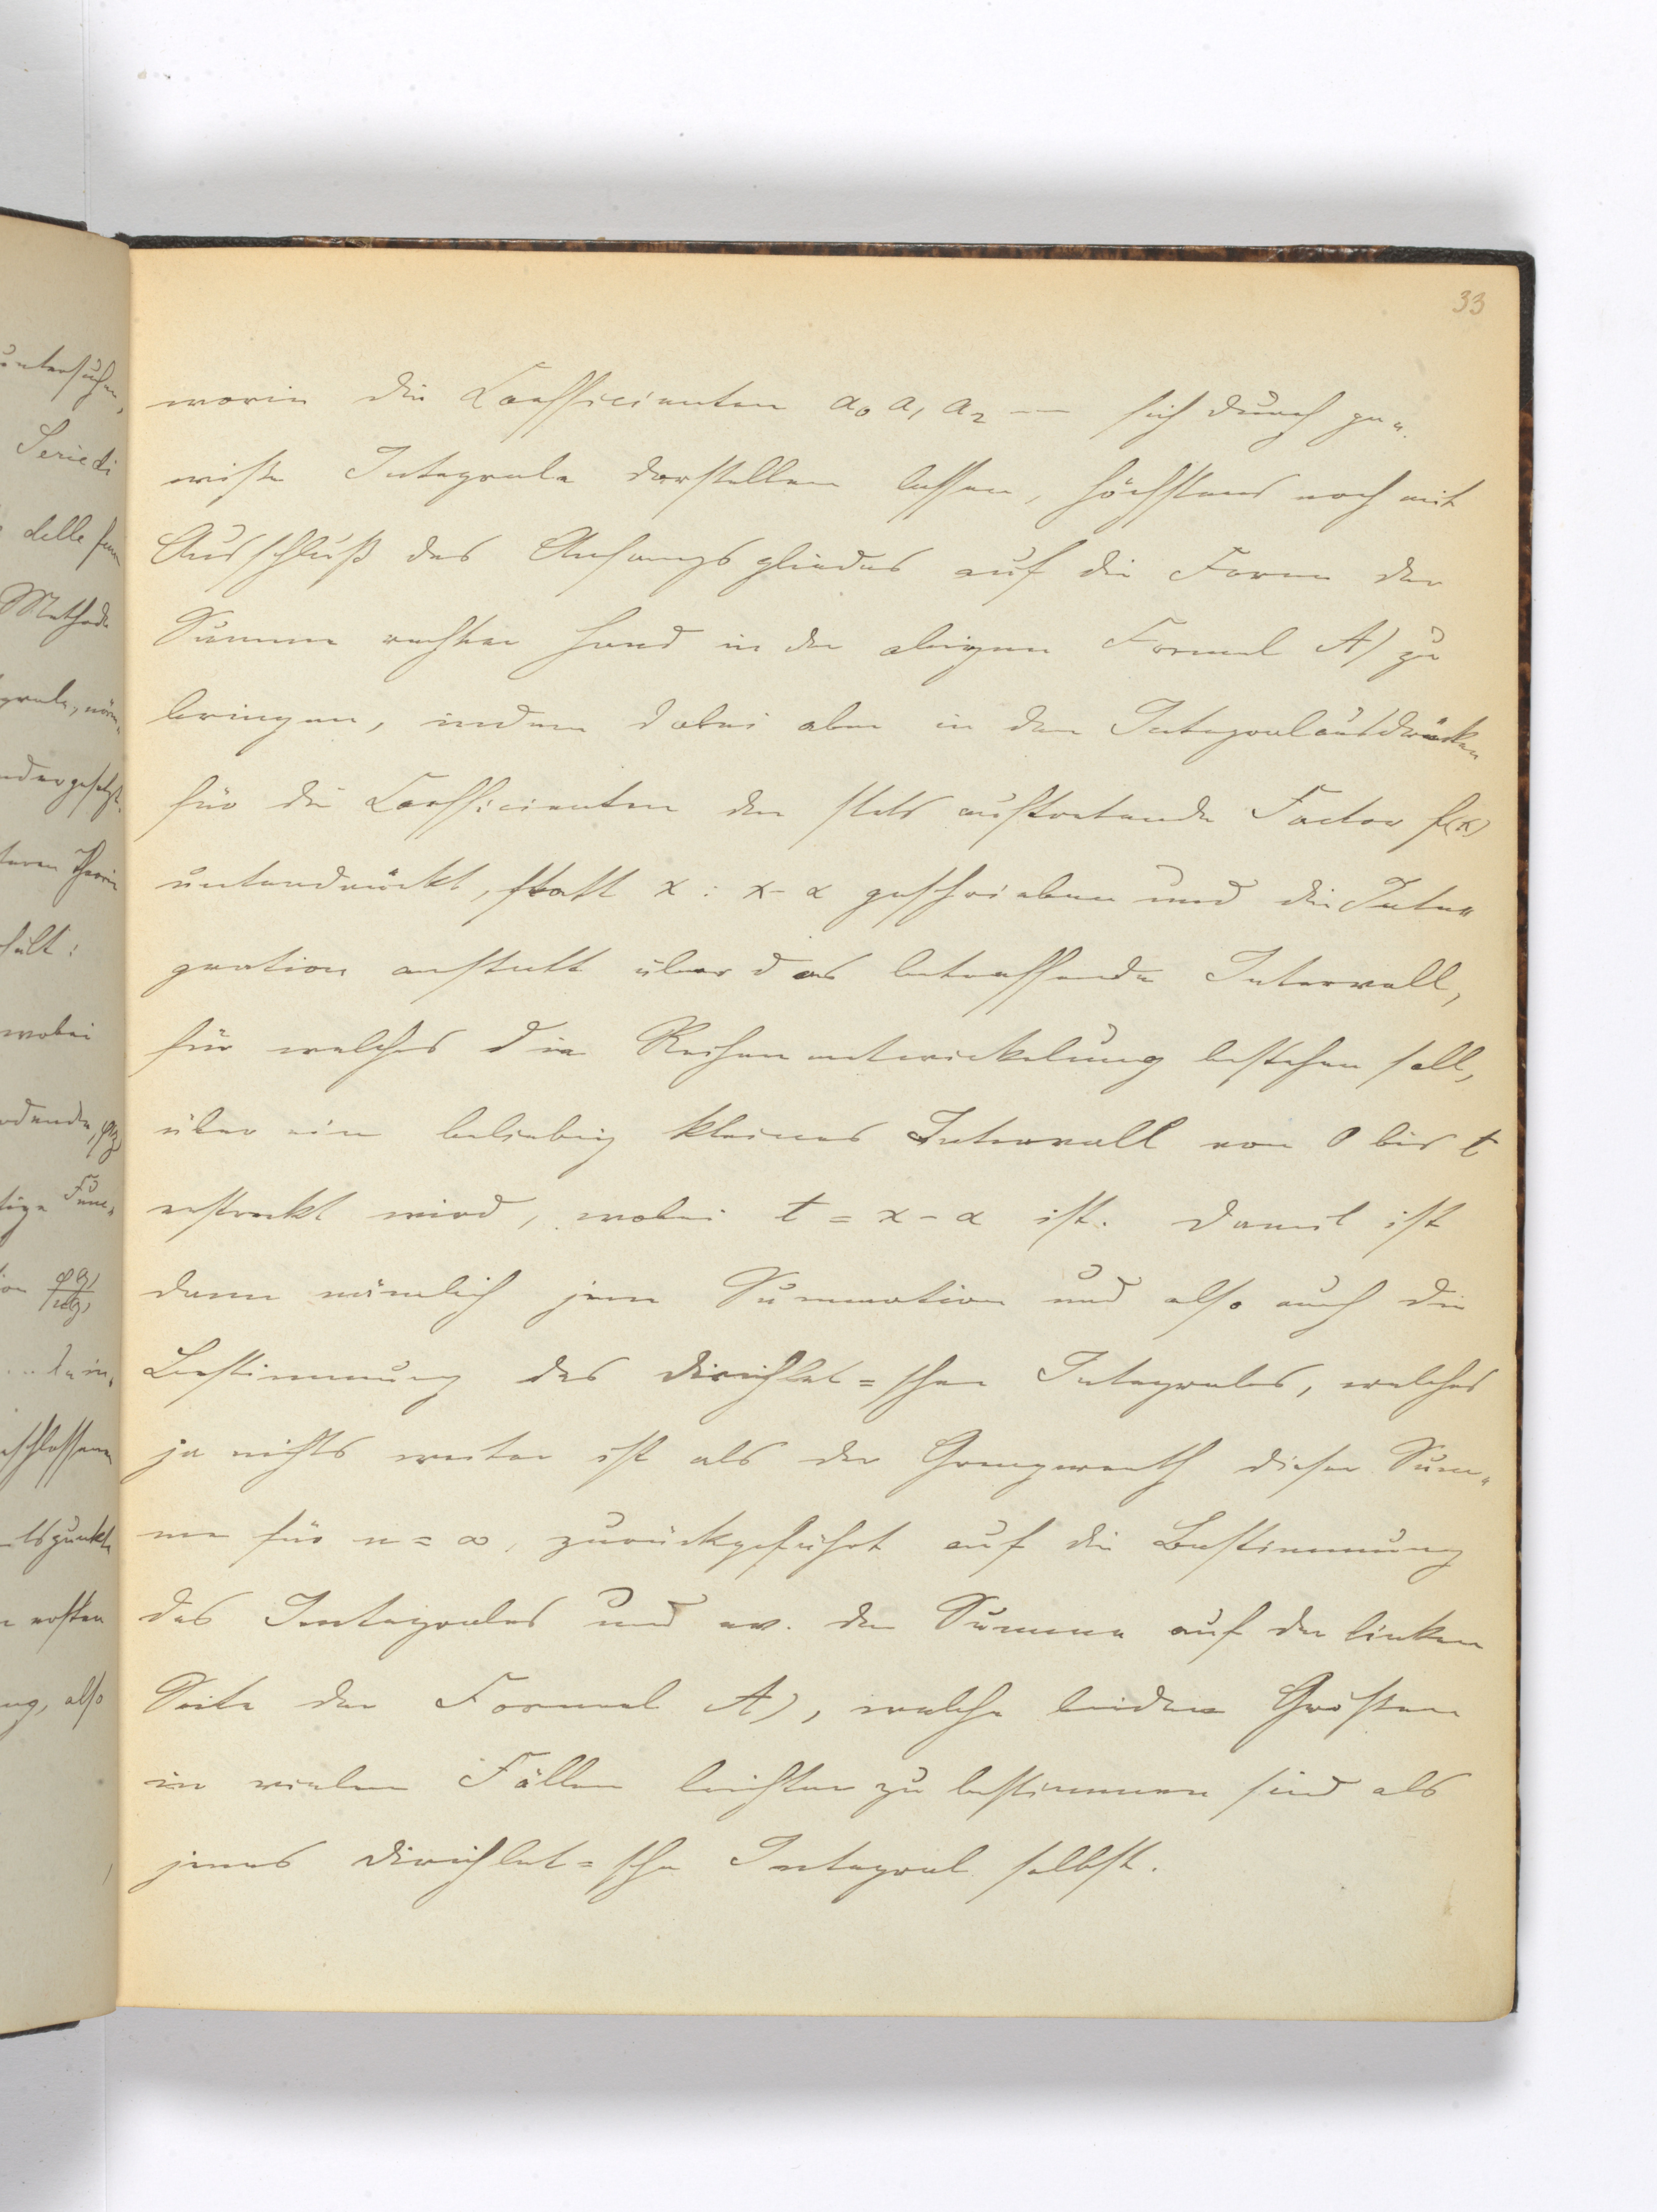 33
worin die Coefficienten a₀ a₁ a₂ — sich durch ge„
wiße Integrale darstellen lassen, höchstens noch mit
Ausschluß des Anfangsgliedes auf die Form der
Summe rechter Hand in der obigen Formel A) zu
bringen, indem dabei aber in den Integralausdrücken
für die Coefficienten der stets auftretende Factor f(x)
unterdrückt, statt x : x-α geschrieben und die Inte„
gration anstatt über das betreffende Intervall,
für welches die Reihenentwickelung bestehen soll,
über ein beliebig kleines Intervall von 0 bis t
erstreckt wird, wobei t = x - α ist. Damit ist
dann nämlich jene Summation und also auch die
Bestimmung des Dirichlet=schen Integrales, welches
ja nichts weiter ist als der Grenzwerth dieser Sum„
me für n = ∞, zurückgeführt auf die Bestimmung
des Integrales und ev. der Summe auf der linken
Seite der Formel A), welche beiden Größen
in vielen Fällen leichter zu bestimmen sind als
jenes Dirichlet=sche Integral selbst.
untersuchen,
Serie di
delle fun
Methode
wobei
Func„
ersten
also